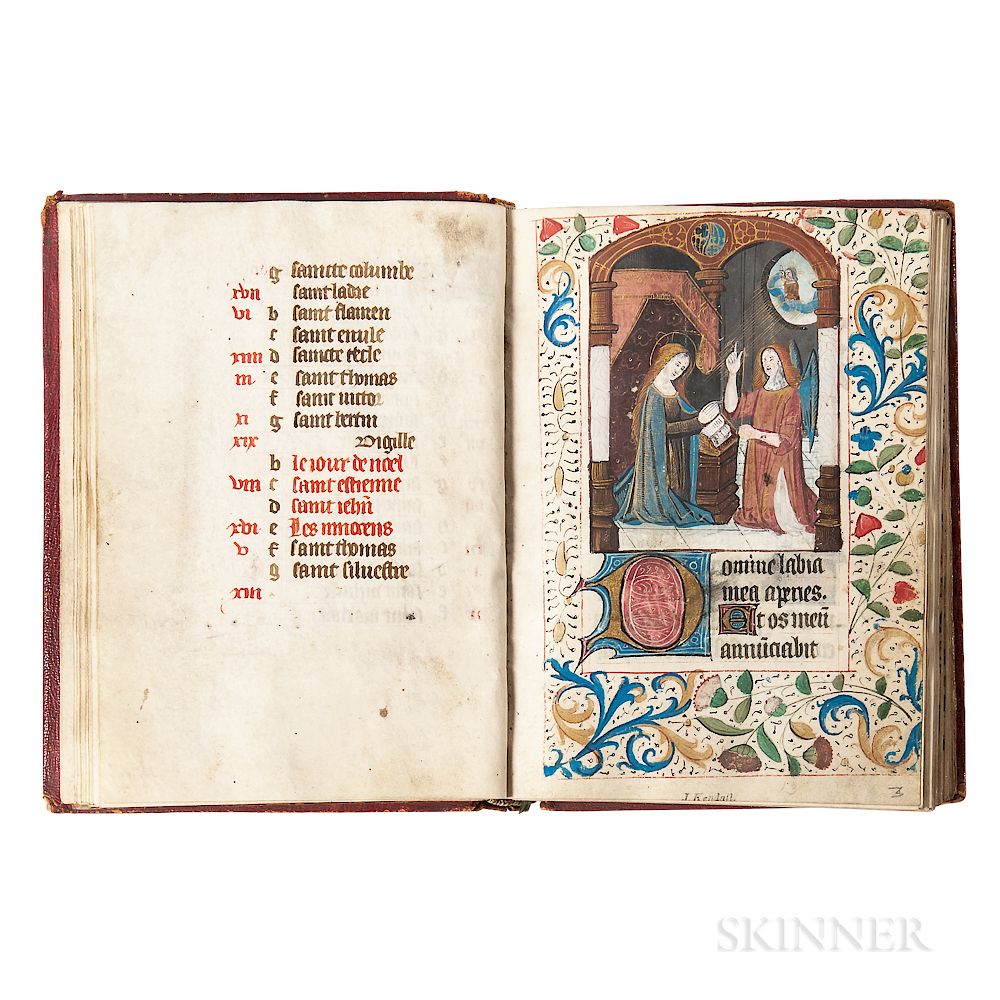 g sancte columbe
xvii saint ladre
vi b saint flamen
c saint
xiiii d sancte tecle
iii e saint thomas
f saint victor
xi g saint bertin
xix Vigille
b le iour de noel
viii c saint estienne
d saint iehñ
xvi e Les innocens
v f saint thomas
g saint siluestre
xiii
Domine labia
mea aperies.
Et os meũ
annũciabit
J. Kendall.
SKINNER